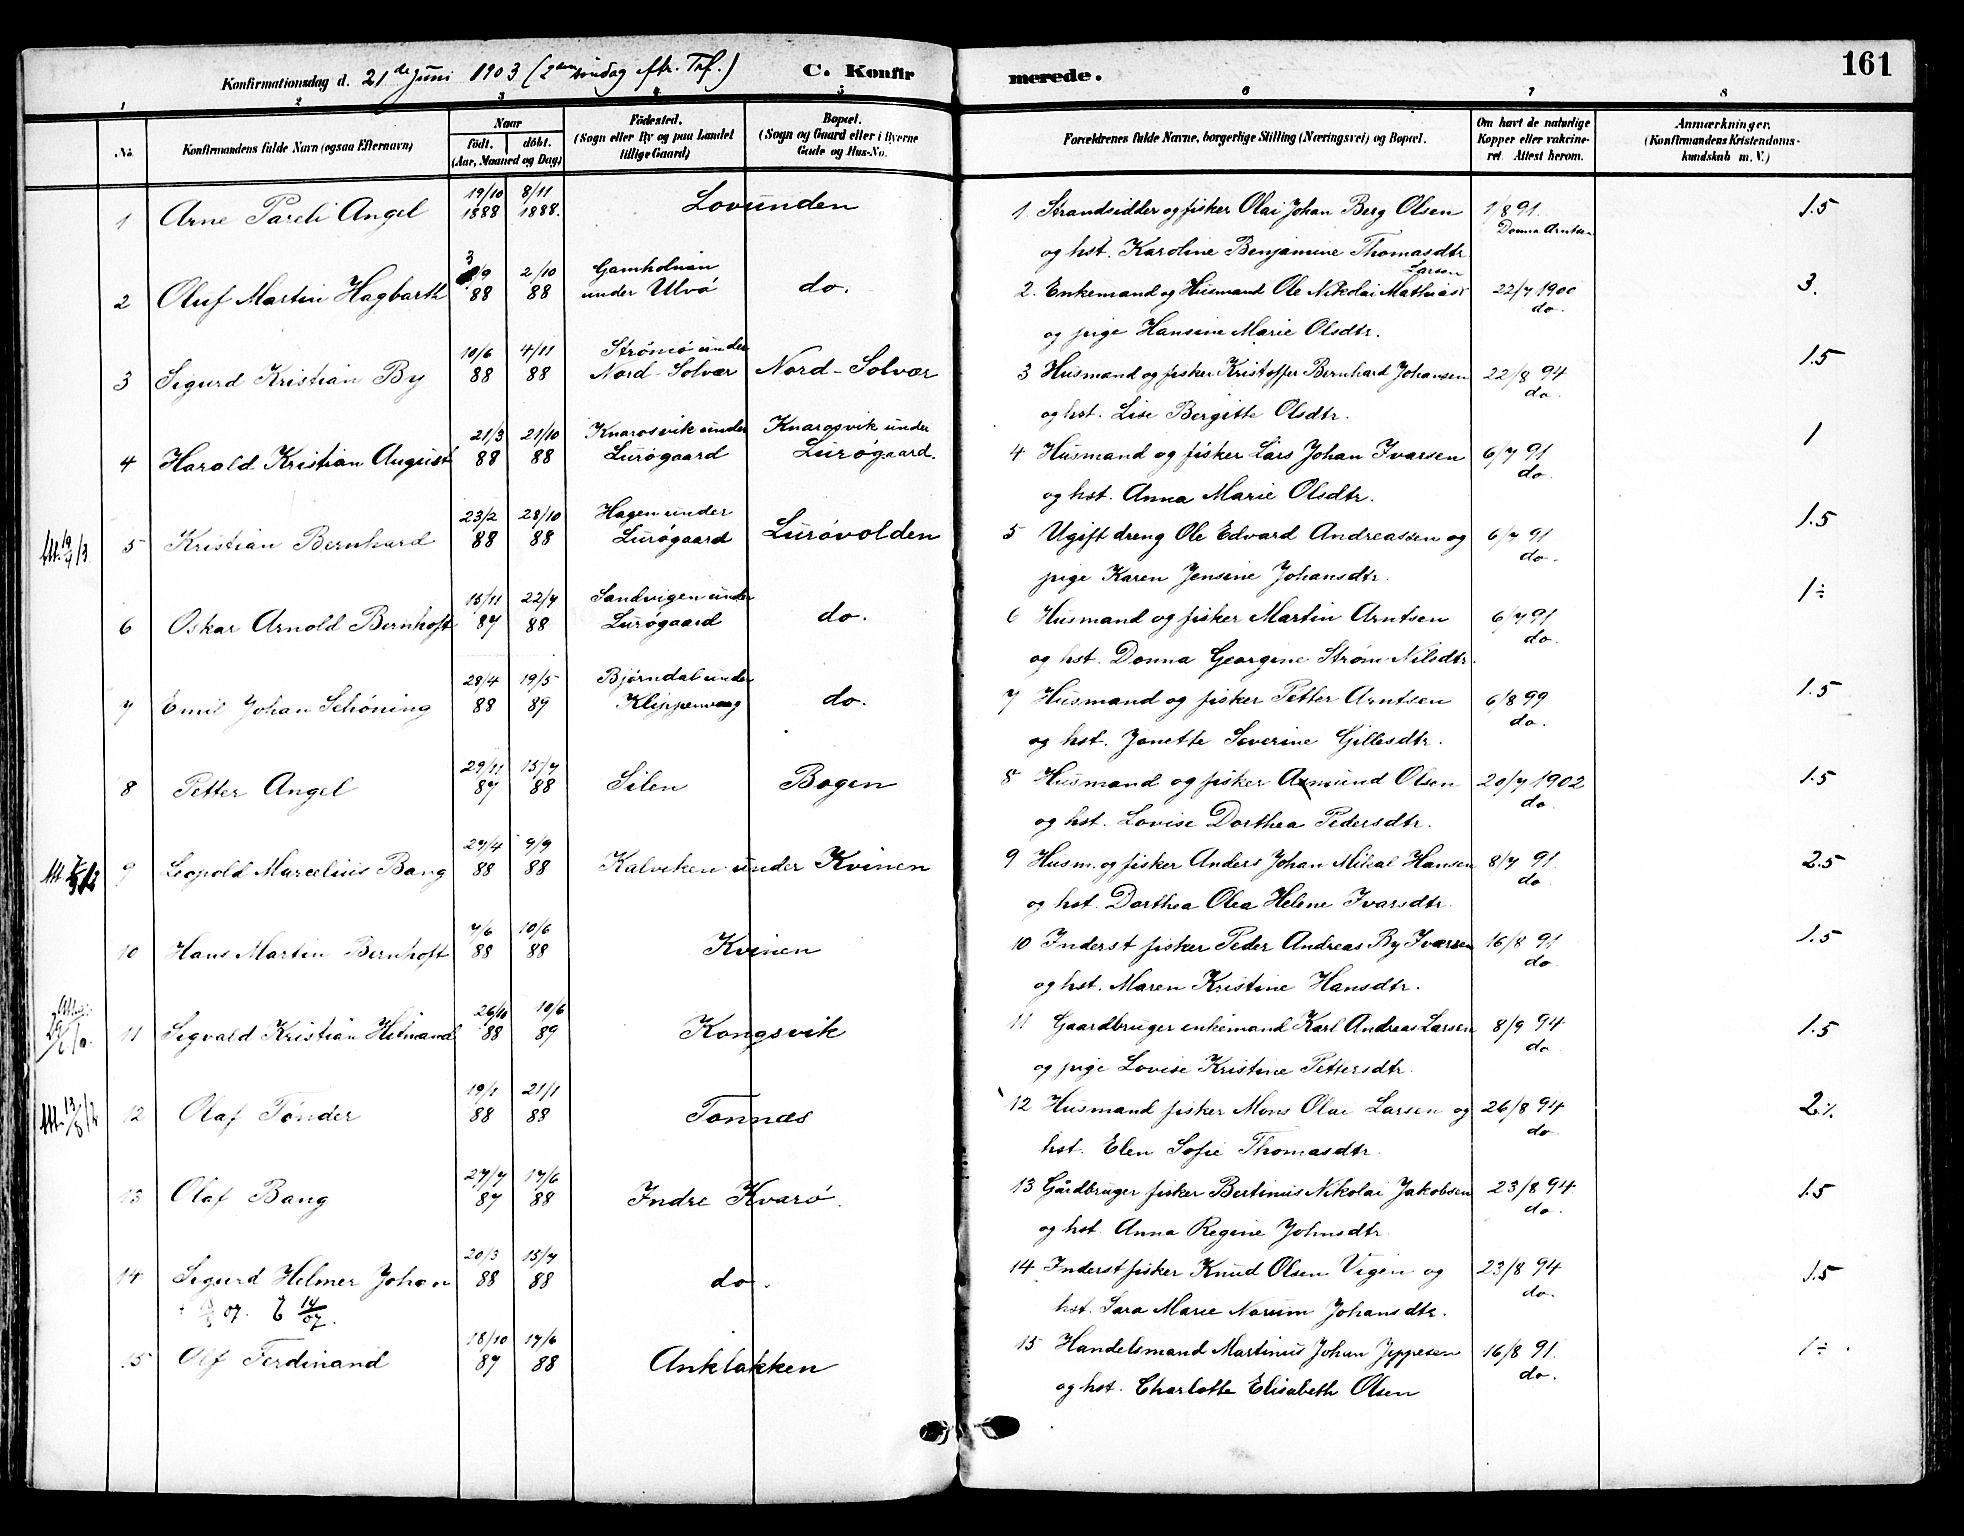 Konfirmationsdag d. 21de Juni 1903 (2den søndag eftr. Tref.) C. Konfirmerede. 161
1 2 3 4 5 6 7 8
No. Konfirmandens fulde Navn (ogsaa Efternavn) Naar født. døbt. (Aar, Maaned og Dag) Fødested. (Sogn eller By og paa Landet tillige Gaard) Bopæl. (Sogn og Gaard eller i Byerne Gade og Hus-No. Forældrenes fulde Navne, borgerlige Stilling (Næringsvei) og Bopæl. Om havt de naturlige Kopper eller vakcineret. Attest herom. Anmærkninger. (Konfirmandens Kristendomskundskab m. V.)
1 Arne Pareli Angel 19/10 1888 8/11 1888. Lovunden 1 Strandsidder og fisker Olai Johan Berg Olsen 1/8 91. Donna Arntsen 1.5
og hst. Karoline Benjamine Thomasdtr
2 Oluf Martin Hagbarth 3/9 88 2/10 88 Gamholmen under Ulvø do. 2. Enkemand og Husmand Ole Nikolai Mathias Larsen 22/7 1900 do. 3.
og pige Hansine Marie Olsdtr.
3 Sigurd Kristian By 10/6 88 4/11 88 Strømø under Nord-Solvær Nord-Solvær 3 Husmand og fisker Kristoffer Bernhard Johansen 22/8 94 do 1.5
og hst. Lise Bergitte Olsdtr.
4 Harald Kristian August 21/3 88 21/10 88 Knarosvik under Lurøgaard Knarosvik under Lurøgaard. 4 Husmand og fisker Lars Johan Ivarsen 6/7 91 do. 1
og hst. Anna Marie Olsdtr.
5 Kristian Bernhard 23/2 88 28/10 88 Hagen under Lurøgaard Lurøvolden 5 Ugift dreng Ole Edvard Andreassen og 6/7 91 do. 1.5
pige Karen Jensine Johansdtr.
6 Oskar Arnold Bernhoft 15/11 87 22/7 88 Sandvigen under Lurøgaard do. 6 Husmand og fisker Martin Arntsen 6/7 91 do. 1÷
og hst. Donna Georgine Strøm Nilsdtr.
7 Emil Johan Schöning 28/4 88 19/5 89 Bjørndal under Klippenvaag do. 7 Husmand og fisker Petter Arntsen 6/8 99 do. 1.5
og hst. Jonette Severine Gillesdtr.
8 Petter Angel 29/11 87 15/7 88 Silen Bogen 8 Husmand og fisker Asmund Olsen 20/7 1902 do. 1.5
og hst. Lovise Dorthea Pedersdtr.
9 Leopold Marcelius Bang 27/4 88 9/9 88 Kalviken under Kvinen 9 Husm. og fisker Anders Johan Mikal Hansen 8/7 91. do 2.5
og hst. Dorthea Olea Helene Ivarsdtr.
10 Hans Martin Bernhoft 7/6 88 10/6 88 Kvinen 10 Inderst fisker Peder Andreas By Iversen 16/8 91 do. 1.5
og hst. Maren Kristine Hansdtr.
11 Sigvald Kristian Hitmand 26/10 88 10/6 89 Kongsvik 11 Gaardbruger enkemand Karl Andreas Larsen 8/9 94 do 1.5
og pige Lovise Kristine Pettersdtr.
12 Olaf Tønder 19/1 88 21/1 88 Tonnæs 12 Husmand fisker Mons Olai Larsen og 26/8 94 do 2.%
hst. Elen Sofie Thomasdtr.
13 Olaf Bang 27/7 87 17/6 88 Indre Kvarø. 13 Gårdbruger fisker Bertinus Nikolai Jakobsen 23/8 94. do. 1.5
og hst. Anna Regine Johnsdtr.
14 Sigurd Helmer Johan 20/3 88 15/7 88 do. 14 Inderst fisker Knud Olsen Vigen og 23/8 94 do. 1.5
07. 14/07. hst. Sara Marie Norum Johansdtr.
15 Alf Ferdinand 18/10 87 17/6 88 Anklakken 15 Handelsmand Martinus Johan Jeppesen 16/8 91. do. 1÷.
og hst. Charlotte Elisabeth Olsen